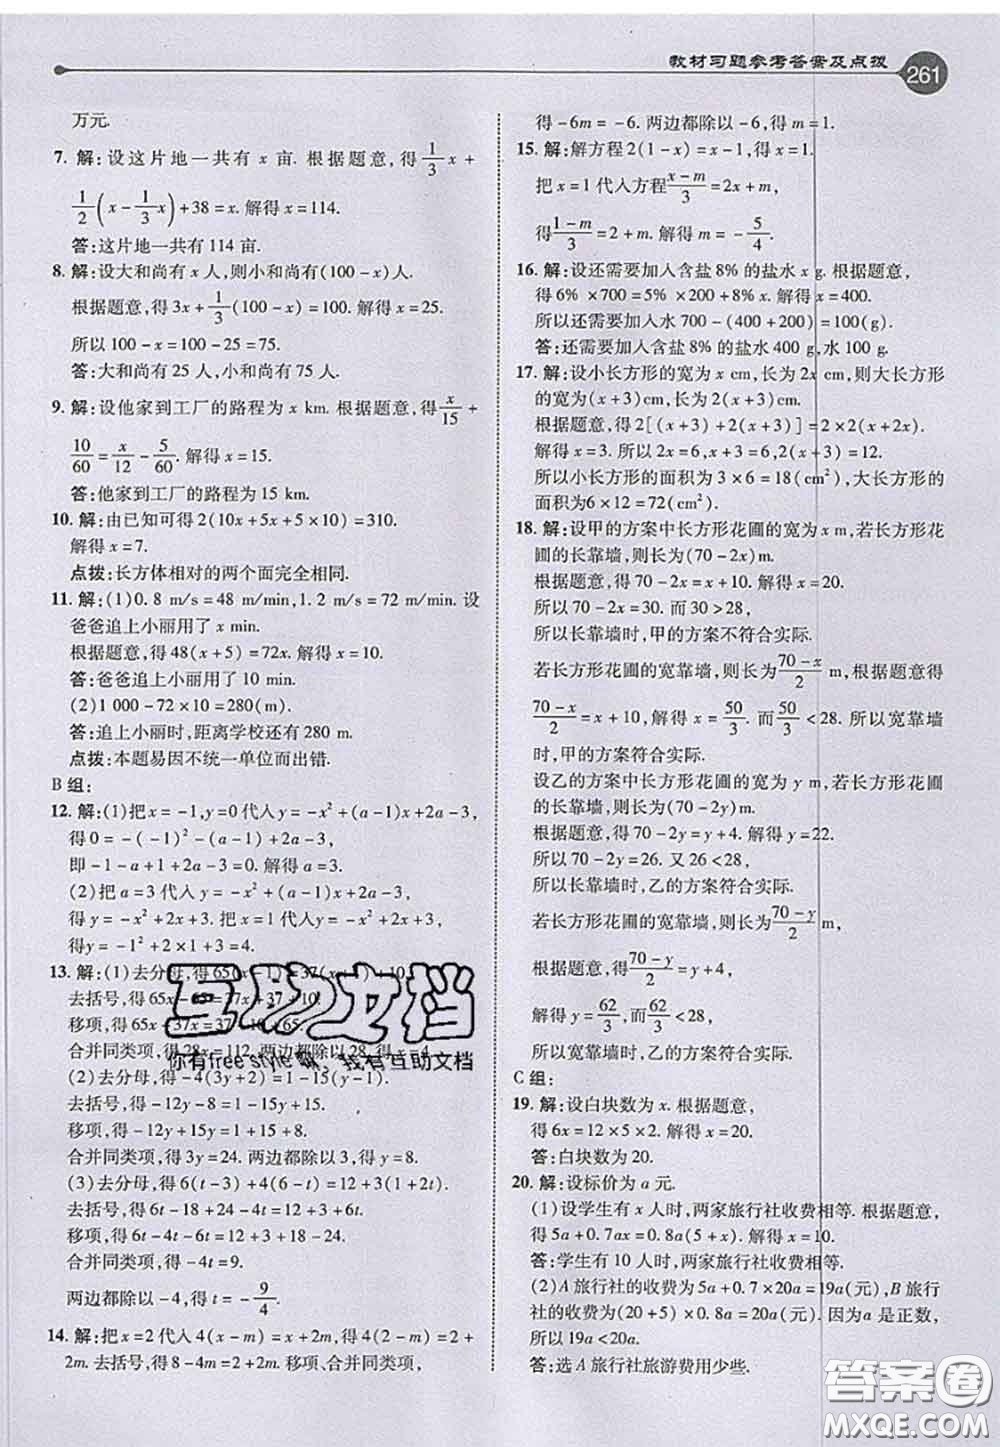 教材习题参考答案及点拨 261
万元.
7. 解:设这片地一共有 x 亩. 根据题意,得 1/3 x +
1/2(x - 1/3 x) + 38 = x. 解得 x = 114.
答:这片地一共有 114 亩.
8. 解:设大和尚有 x 人,则小和尚有(100 - x)人.
根据题意,得 3x + 1/3(100 - x) = 100. 解得 x = 25.
所以 100 - x = 100 - 25 = 75.
答:大和尚有 25 人,小和尚有 75 人.
9. 解:设他家到工厂的路程为 x km. 根据题意,得 x/15 +
10/60 = x/12 - 5/60. 解得 x = 15.
答:他家到工厂的路程为 15 km.
10. 解:由已知可得 2(10x + 5x + 5 × 10) = 310.
解得 x = 7.
点拨:长方体相对的两个面完全相同.
11. 解:(1)0. 8 m/s = 48 m/min,1. 2 m/s = 72 m/min. 设
爸爸追上小丽用了 x min.
根据题意,得 48(x + 5) = 72x. 解得 x = 10.
答:爸爸追上小丽用了 10 min.
(2)1 000 - 72 × 10 = 280(m)
答:追上小丽时,距离学校还有 280 m.
点拨:本题易因不统一单位而出错.
B 组:
12. 解:(1)把 x = -1,y = 0 代入 y = -x² + (a - 1)x + 2a - 3,
得 0 = -( -1)² - (a - 1) + 2a - 3,
即 -1 - a + 1 + 2a - 3 = 0. 解得 a = 3.
(2)把 a = 3 代入 y = -x² + (a - 1)x + 2a - 3,
得 y = -x² + 2x + 3. 把 x = 1 代入 y = -x² + 2x + 3,
得y = -1² + 2 × 1 + 3 = 4.
13. 解:(1)去分母,得 65(x - 1) = 37(x + 1) + 10.
去括号,得 65x - 65 = 37x + 37 + 10.
移项,得 65x - 37x = 37 + 10 + 65.
合并同类项,得 28x = 112. 两边都除以 28,得 x = 4.
(2)去分母,得 -4(3y + 2) = 1 - 15(y - 1).
去括号,得 -12y - 8 = 1 - 15y + 15.
移项,得 -12y + 15y = 1 + 15 + 8.
合并同类项,得 3y = 24. 两边都除以 3,得 y = 8.
(3)去分母,得 6(t - 3) + 4(6 - t) = 12 + 6t.
去括号,得 6t - 18 + 24 - 4t = 12 + 6t.
移项,得 6t - 4t - 6t = 12 + 18 - 24.
合并同类项,得 -4t = 9.
两边都除以 -4,得 t = -9/4.
14. 解:把 x = 2 代入 4(x - m) = x + 2m,得 4(2 - m) = 2 +
2m. 去括号,得 8 - 4m = 2 + 2m. 移项、合并同类项,
得 -6m = -6. 两边都除以 -6,得 m = 1.
15. 解:解方程 2(1 - x) = x - 1,得 x = 1.
把 x = 1 代入方程 (x - m)/3 = 2x + m,
得 (1 - m)/3 = 2 + m. 解得 m = -5/4.
16. 解:设还需要加入含盐 8% 的盐水 x g. 根据题意,
得 6% × 700 = 5% × 200 + 8% x. 解得 x = 400.
所以还需要加入水 700 - (400 + 200) = 100(g).
答:还需要加入含盐 8% 的盐水 400 g,水 100 g.
17. 解:设小长方形的宽为 x cm,长为 2x cm,则大长方形
的宽为(x + 3)cm,长为 2(x + 3)cm.
根据题意,得 2[(x + 3) + 2(x + 3)] = 2 × 2(x + 2x).
解得 x = 3. 所以 2x = 6,x + 3 = 6,2(x + 3) = 12.
所以小长方形的面积为 3 × 6 = 18(cm²),大长方形的
面积为 6 × 12 = 72(cm²).
18. 解:设甲的方案中长方形花圃的宽为 x m,若长方形花
圃的长靠墙,则长为(70 - 2x)m.
根据题意,得 70 - 2x = x + 10. 解得 x = 20.
所以 70 - 2x = 30. 而 30 > 28,
所以长靠墙时,甲的方案不符合实际.
若长方形花圃的宽靠墙,则长为 (70 - x)/2 m,根据题意得
(70 - x)/2 = x + 10,解得 x = 50/3. 而 50/3 < 28. 所以宽靠墙
时,甲的方案符合实际.
设乙的方案中长方形花圃的宽为 y m,若长方形花圃的
长靠墙,则长为(70 - 2y)m.
根据题意,得 70 - 2y = y + 4. 解得 y = 22.
所以 70 - 2y = 26. 又 26 < 28,
所以长靠墙时,乙的方案符合实际.
若长方形花圃的宽靠墙,则长为 (70 - y)/2 m,
根据题意,得 (70 - y)/2 = y + 4,
解得 y = 62/3. 而 62/3 < 28,
所以宽靠墙时,乙的方案符合实际.
C 组:
19. 解:设白块数为 x. 根据题意,
得 6x = 12 × 5 × 2. 解得 x = 20.
答:白块数为 20.
20. 解:设标价为 a 元.
(1)设学生有 x 人时,两家旅行社收费相等. 根据题意,
得 5a + 0.7ax = 0.8a(5 + x). 解得 x = 10.
答:学生有 10 人时,两家旅行社收费相等.
(2)A 旅行社的收费为 5a + 0.7 × 20a = 19a(元),B 旅行
社的收费为(20 + 5) × 0.8a = 20a(元). 因为 a 是正数,
所以 19a < 20a.
答:选 A 旅行社旅游费用少些.
互助文档
你有free style嘛,我有互助文档
答案圈
MXQE.COM